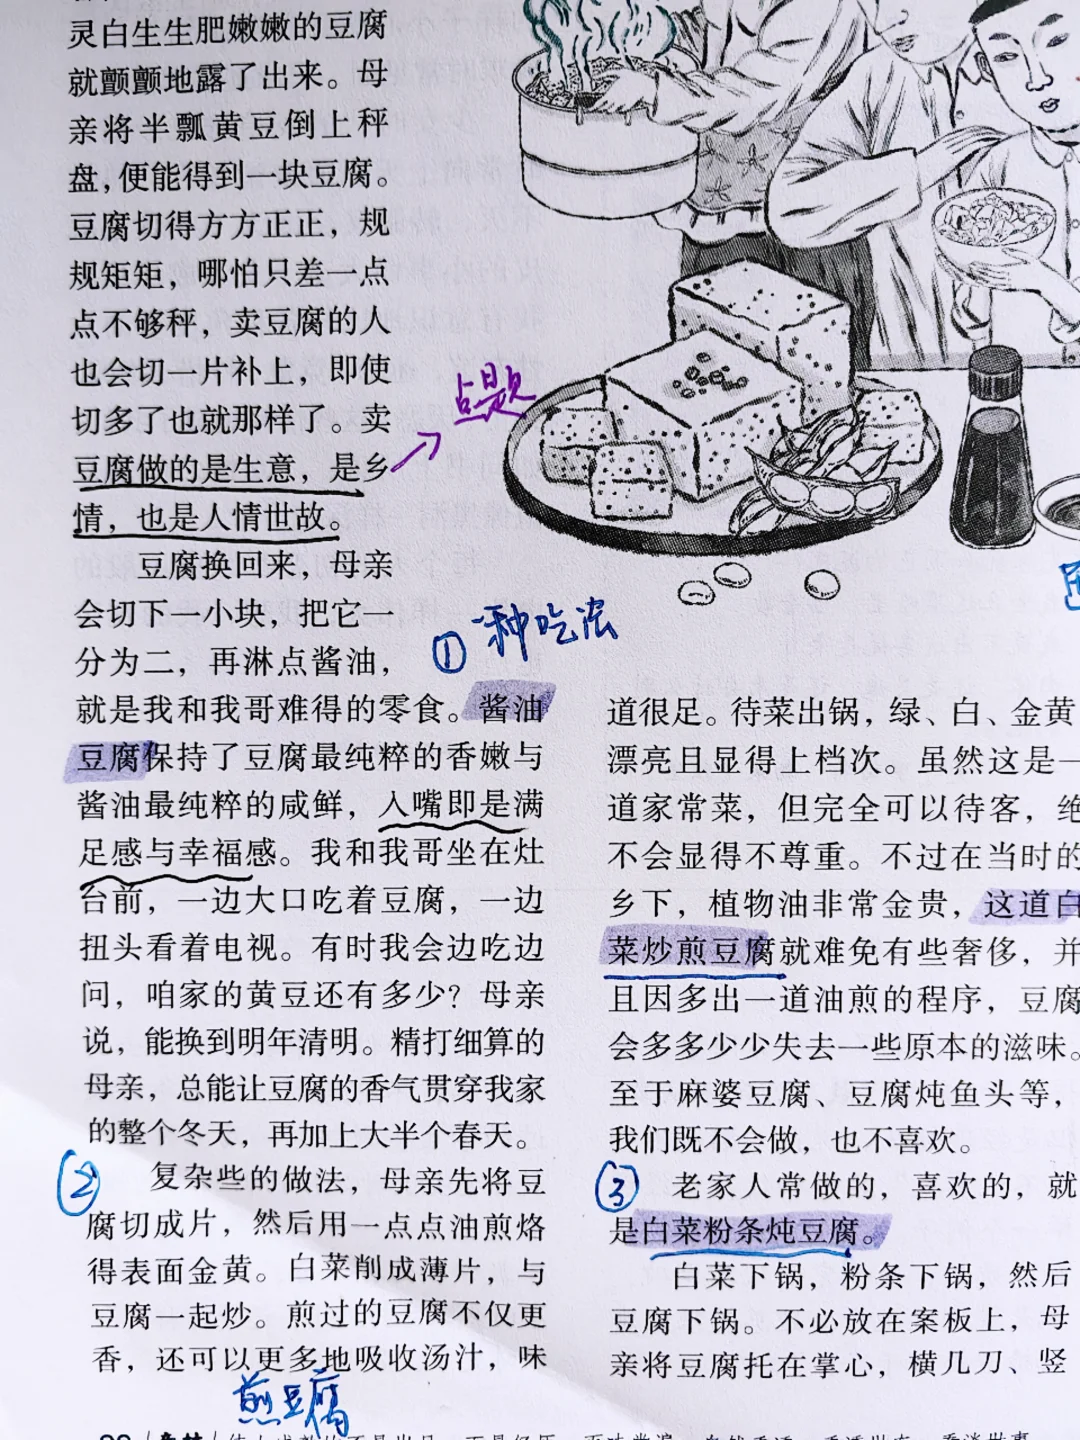 灵白生生肥嫩嫩的豆腐
就颤颤地露了出来。母
亲将半瓢黄豆倒上秤
盘，便能得到一块豆腐。
豆腐切得方方正正，规
规矩矩，哪怕只差一点
点不够秤，卖豆腐的人
也会切一片补上，即使
切多了也就那样了。卖
豆腐做的是生意，是乡
情，也是人情世故。
点题
豆腐换回来，母亲
会切下一小块，把它一
分为二，再淋点酱油，
①一种吃法
就是我和我哥难得的零食。酱油
豆腐保持了豆腐最纯粹的香嫩与
酱油最纯粹的咸鲜，入嘴即是满
足感与幸福感。我和我哥坐在灶
台前，一边大口吃着豆腐，一边
扭头看着电视。有时我会边吃边
问，咱家的黄豆还有多少？母亲
说，能换到明年清明。精打细算的
母亲，总能让豆腐的香气贯穿我家
的整个冬天，再加上大半个春天。
②
复杂些的做法，母亲先将豆
腐切成片，然后用一点点油煎烙
得表面金黄。白菜削成薄片，与
豆腐一起炒。煎过的豆腐不仅更
香，还可以更多地吸收汤汁，味
煎豆腐
道很足。待菜出锅，绿、白、金黄
漂亮且显得上档次。虽然这是一
道家常菜，但完全可以待客，绝
不会显得不尊重。不过在当时的
乡下，植物油非常金贵，这道白
菜炒煎豆腐就难免有些奢侈，并
且因多出一道油煎的程序，豆腐
会多多少少失去一些原本的滋味。
至于麻婆豆腐、豆腐炖鱼头等，
我们既不会做，也不喜欢。
③
老家人常做的，喜欢的，就
是白菜粉条炖豆腐。
白菜下锅，粉条下锅，然后
豆腐下锅。不必放在案板上，母
亲将豆腐托在掌心，横几刀、竖